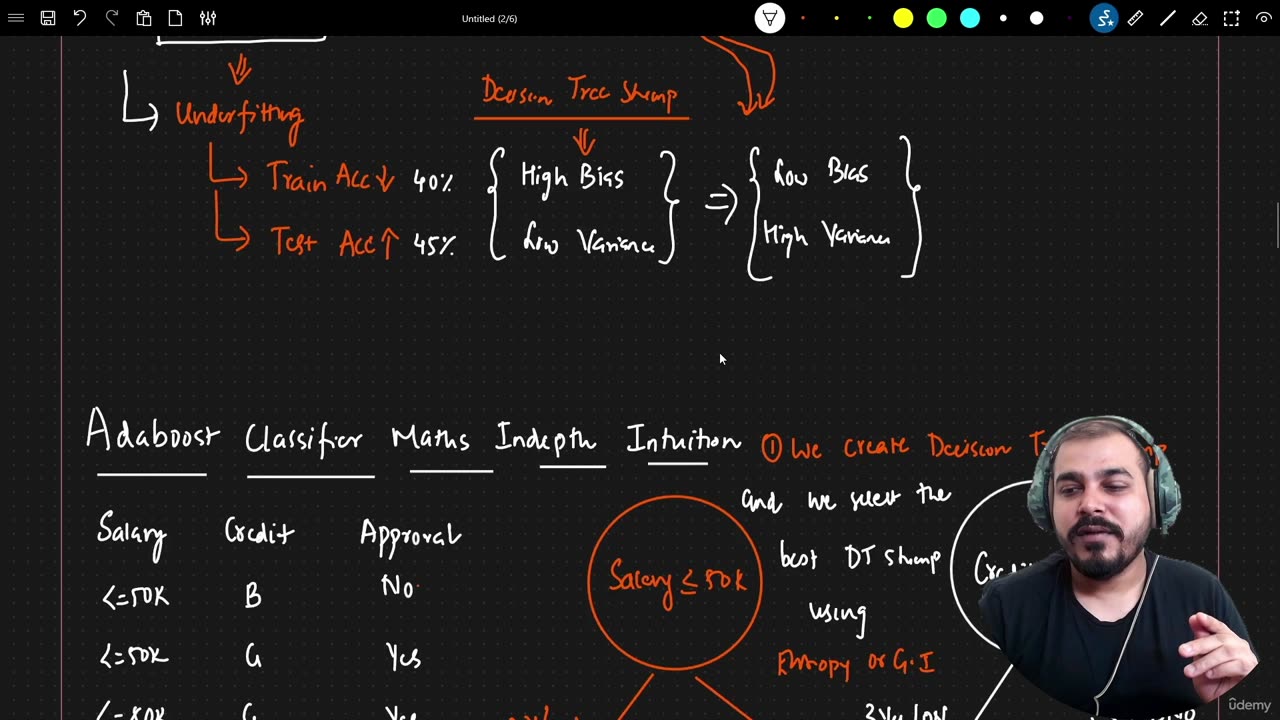 Untitled (2/6)
Decision Tree Stump
Underfitting
Train Acc↓ 40%
High Bias
Low Bias
Test Acc↑ 45%
Low Variance
High Variance
Adaboost Classifier Maths Indepth Intuition
① We create Decision
and we select the
best DT stump
using
Entropy or G.I
Salary Credit Approval
<=50K B No
<=50K G Yes
Salary ≤ 50K
ûdemy